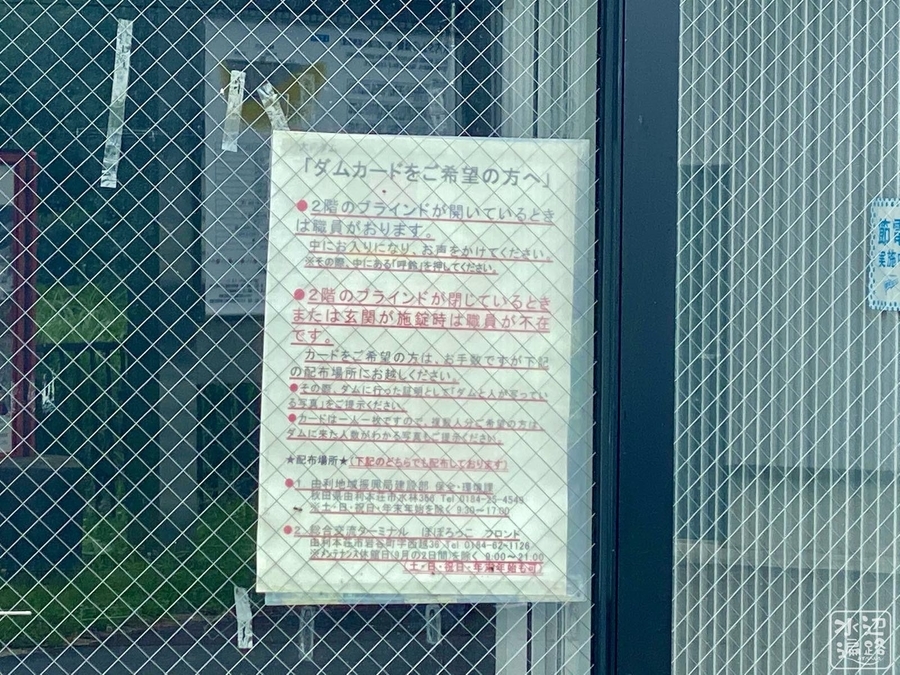 「ダムカードをご希望の方へ」
●2階のブラインドが開いているとき
は職員がおります。
中にお入りになり、お声をかけてください。
※その際、中にある「呼鈴」を押してください。
●2階のブラインドが閉じているとき
または玄関が施錠時は職員が不在
です。
カードをご希望の方は、お手数ですが下記
の配布場所にお越しください。
●その際、ダムに行った証明として「ダムと人が写ってい
る写真」をご提示ください。
●カードは一人一枚ですので、複数人分ご希望の方は、
ダムに来た人数がわかる写真もご提示ください。
★配布場所★(下記のどちらでも配布しております)
●1 由利地域振興局建設部 保全・環境課
秋田県由利本荘市水林366 Tel 0184-25-4549
※土・日・祝日・年末年始を除く 9:30~17:00
●2 総合交流ターミナル ぽぽろっこ フロント
由利本荘市岩谷町字西越36 Tel 0184-62-1126
※メンテナンス休館日(9月の2日間)を除く 9:00~21:00
(土・日・祝日・年末年始も可)
節電
実施中
水辺
遍路